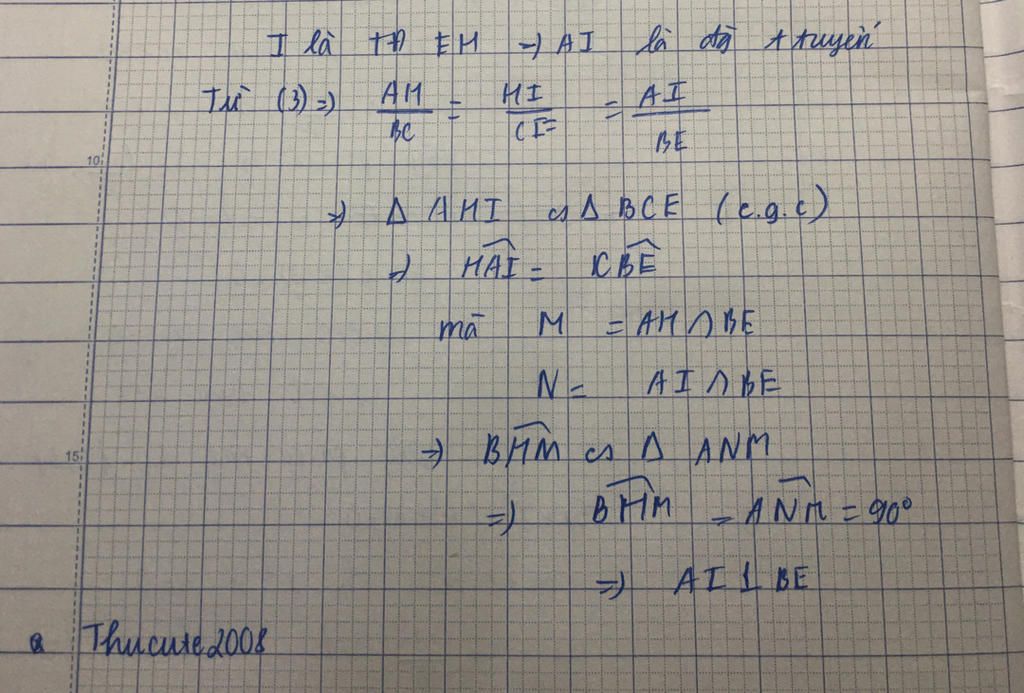 I là TĐ EH => AI là đg t tuyến
Từ (3) => AH/BC = HI/CE = AI/BE
10
=> Δ AHI ∽ Δ BCE (c.g.c)
=> HAI = CBE
mà M = AH ∩ BE
N = AI ∩ BE
15
=> BHM ∽ Δ ANM
=> BHM = ANM = 90°
=> AI ⊥ BE
Thucute2008